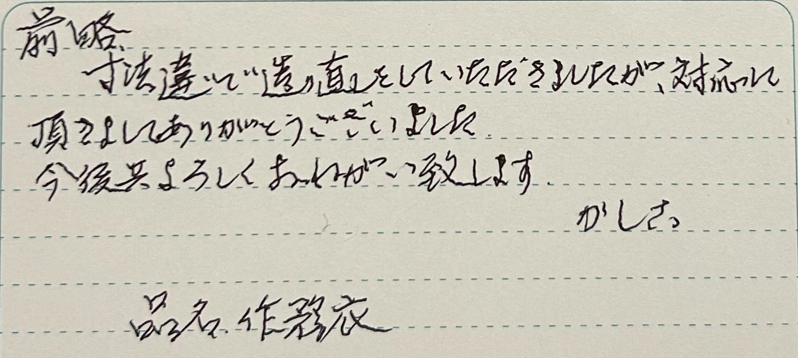 前略、
寸法違いで造り直しをしていただきましたが、対応して
頂きましてありがとうございました。
今後共よろしくおねがい致します。
かしこ
品名、作務衣